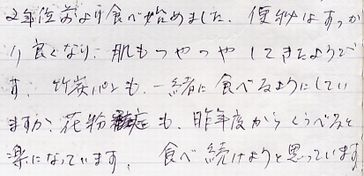 2年位前より食べ始めました。便秘はすっか
り良くなり、肌もつやつやしてきたようで
す。竹炭パンも、一緒に食べるようにしてい
ますが、花粉症も、昨年度からくらべると
楽になっています。食べ続けようと思っています